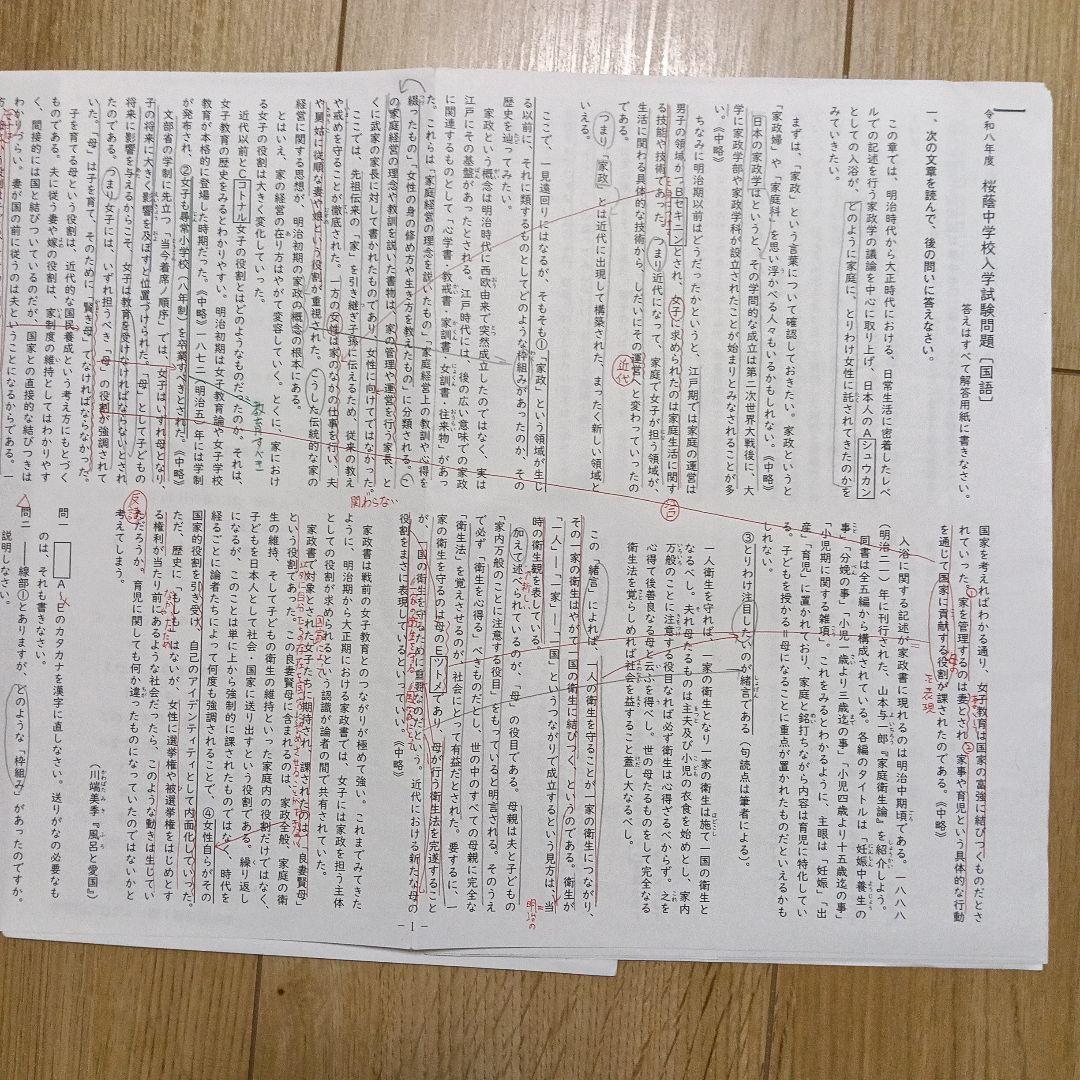 令和八年度　桜蔭中学校入学試験問題［国語］
答えはすべて解答用紙に書きなさい。
一、次の文章を読んで、後の問いに答えなさい。
この章では、明治時代から大正時代における、日常生活に密着したレベ
ルでの記述を行う家政学の議論を中心に取り上げ、日本人のAシュウカン
としての入浴が、どのように家庭に、とりわけ女性に託されてきたのかを
みていきたい。
まずは、「家政」という言葉について確認しておきたい。家政というと
「家政婦」や「家庭科」を思い浮かべる人々もいるかもしれない。《中略》
日本の家政学はというと、その学問的な成立は第二次世界大戦後に、大
学に家政学部や家政学科が設立されたことが始まりとみなされることが多
い。《中略》
ちなみに明治期以前はどうだったかというと、江戸期では家庭の運営は
男子の領域かつBセキニンとされ、女子に求められたのは家庭生活に関す
る技能や技術であった。つまり近代になって、家庭で女子が担う領域が、
生活に関わる具体的な技術から、しだいにその運営へと変わっていった
である。
つまり「家政」とは近代に出現して構築された、まったく新しい領域と
いえる。
ここで、一見遠回りにはなるが、そもそも①「家政」という領域が生じ
る以前に、それに類するものとしてどのような枠組みがあったのか、その
歴史を辿ってみたい。
家政という概念は明治時代に西欧由来で突然成立したのではなく、実は
江戸にその基盤があったとされる。江戸時代には、後の広い意味での家政
に関連するものとして「心学書・教戒書・家訓書・女訓書・往来物」があっ
た。これらは「家庭経営の理念を説いたもの」「家庭経営上の教訓や心得を
綴ったもの」「女性の身の修め方や生き方を教えたもの」に分類される。こ
の家庭経営の理念や教訓を説いた書物は、家の管理や運営を行う家長、と
くに武家の家長に対して書かれたものであり、女性に向けてではなかった。
ここでは、先祖伝来の「家」を引き継ぎ子孫に伝えるため、従来の教え
や戒めを守ることが徹底された。一方の女性は家のなかの仕事を行い、夫
や舅姑に従順な妻や娘という役割が重視された。こうした伝統的な家の
経営に関する思想が、明治初期の家政の概念の根本にある。
とはいえ、家の経営の在り方はやがて変容していく。とくに、家におけ
る女子の役割は大きく変化していった。
近代以前とCコトナル女子の役割とはどのようなものだったのか。それは、
女子教育の歴史をみるとわかりやすい。明治初期は女子教育論や女子学校
教育が本格的に登場した時期だった。《中略》一八七二（明治五）年には学制
が発布され、②女子も尋常小学校（八年制）を卒業すべきとされた。《中略》
文部省の学制に先立つ「当今着席ノ順序」では、女子はいずれ母となり、
子の将来に大きく影響を及ぼすと位置づけられた。「母」として子どもの
将来に影響を与えるからこそ、女子は教育を受けなければならないとされ
たのである。つまり女子には、いずれ担うべき「母」の役割が強調されて
いた。「母」は子を育て、そのために「賢き母」でなければならなかった。
子を育てる母という役割は、近代的な国民養成という考え方にもとづく
ものである。夫に従う妻や嫁の役割は、家制度の維持としてはわかりやす
く、間接的には国と結びついているのだが、国家との直接的な結びつきは
わかりづらい。妻が国の前に従うのは夫ということになるからである。一
近代
関わらない
国家を考えればわかる通り、女子教育は国家の富強に結びつくものだとさ
れていった。家を管理するのは妻とされ、家事や育児という具体的な行動
を通じて国家に貢献する役割が課されたのである。《中略》
入浴に関する記述が家政書に現れるのは明治中期頃である。一八八八
（明治二一）年に刊行された、山本与一郎『家庭衛生論』を紹介しよう。
同書は全五編から構成されている。各編のタイトルは「妊娠中養生の
事」「分娩の事」「小児一歳より三歳迄の事」「小児四歳より十五歳迄の事」
「小児期に関する雑項」。これをみるとわかるように、主眼は「妊娠」「出
産」「育児」に置かれており、家庭と銘打ちながら内容は育児に特化してい
る。子どもを授かる＝母になることに重点が置かれたものだといえるかも
しれない。
③とりわけ注目したいのが緒言である（句読点は筆者による）。
一人衛生を守れば、一家の衛生となり一家の衛生は施て一国の衛生と
なるべし。夫れ母たるものは主夫及び小児の衣食を始めとし、家内
万般のことに注意する役目なれば必ず衛生は心得さるべからず。之を
心得て後善良なる母と云ふを得べし。世の母たるものをして完全なる
衛生法を覚らしめれば社会を益すること蓋し大なるべし。
この「緒言」によれば、一人の衛生を守ることが一家の衛生につながり、
その一家の衛生はやがて一国の衛生に結びつく、というのである。衛生が
「一人」―「一家」―「一国」というつながりで成立するという見方は、当
時の衛生観を表している。
加えて述べられているのが、「母」の役目である。母親は夫と子どもの
「家内万般のことに注意する役目」をもっていると明言される。そのうえ
で必ず「衛生を心得る」べきものだとし、世の中のすべての母親に完全な
「衛生法」を覚えさせるのが、社会にとって有益だとされた。要するに、一
家の衛生を守るのは母のEツトメであり、母が行う衛生法を完遂すること
が、一国の衛生を守るために重要なのだという。近代における新たな母の
役割をまさに表現しているといっていい。《中略》
家政書は戦前の女子教育とのつながりが極めて強い。これまでみてきた
ように、明治期から大正期における家政書では、女子には家政を担う主体
としての役割が求められるという認識が論者の間で共有されていた。
家政書で対象とされた女子たちに期待され、課されたのは、「良妻賢母」
という役割であった。この良妻賢母に含まれるのは、家政全般、家庭の衛
生の維持、そして子どもの衛生の維持といった家庭内の役割だけではなく、
子どもを日本人として社会・国家に送り出すという役割である。繰り返し
になるが、このことは単に上から強制的に課されたものではなく、時代を
経るごとに論者たちによって何度も強調されることで、④女性自らがその
国家的役割を引き受け、自己のアイデンティティとして内面化していった。
ただ、歴史に「もしも」はないが、女性に選挙権や被選挙権をはじめとす
る権利が当たり前にあるような社会だったら、このような動きは生じてい
ただろうか。育児に関しても何か違ったものになっていたのではないかと
考えてしまう。
（川端美季『風呂と愛国』）
問一　A〜Eのカタカナを漢字に直しなさい。送りがなの必要なも
のは、それも書きなさい。
問二　――線部①とありますが、どのような「枠組み」があったのですか。
説明しなさい。
－1－